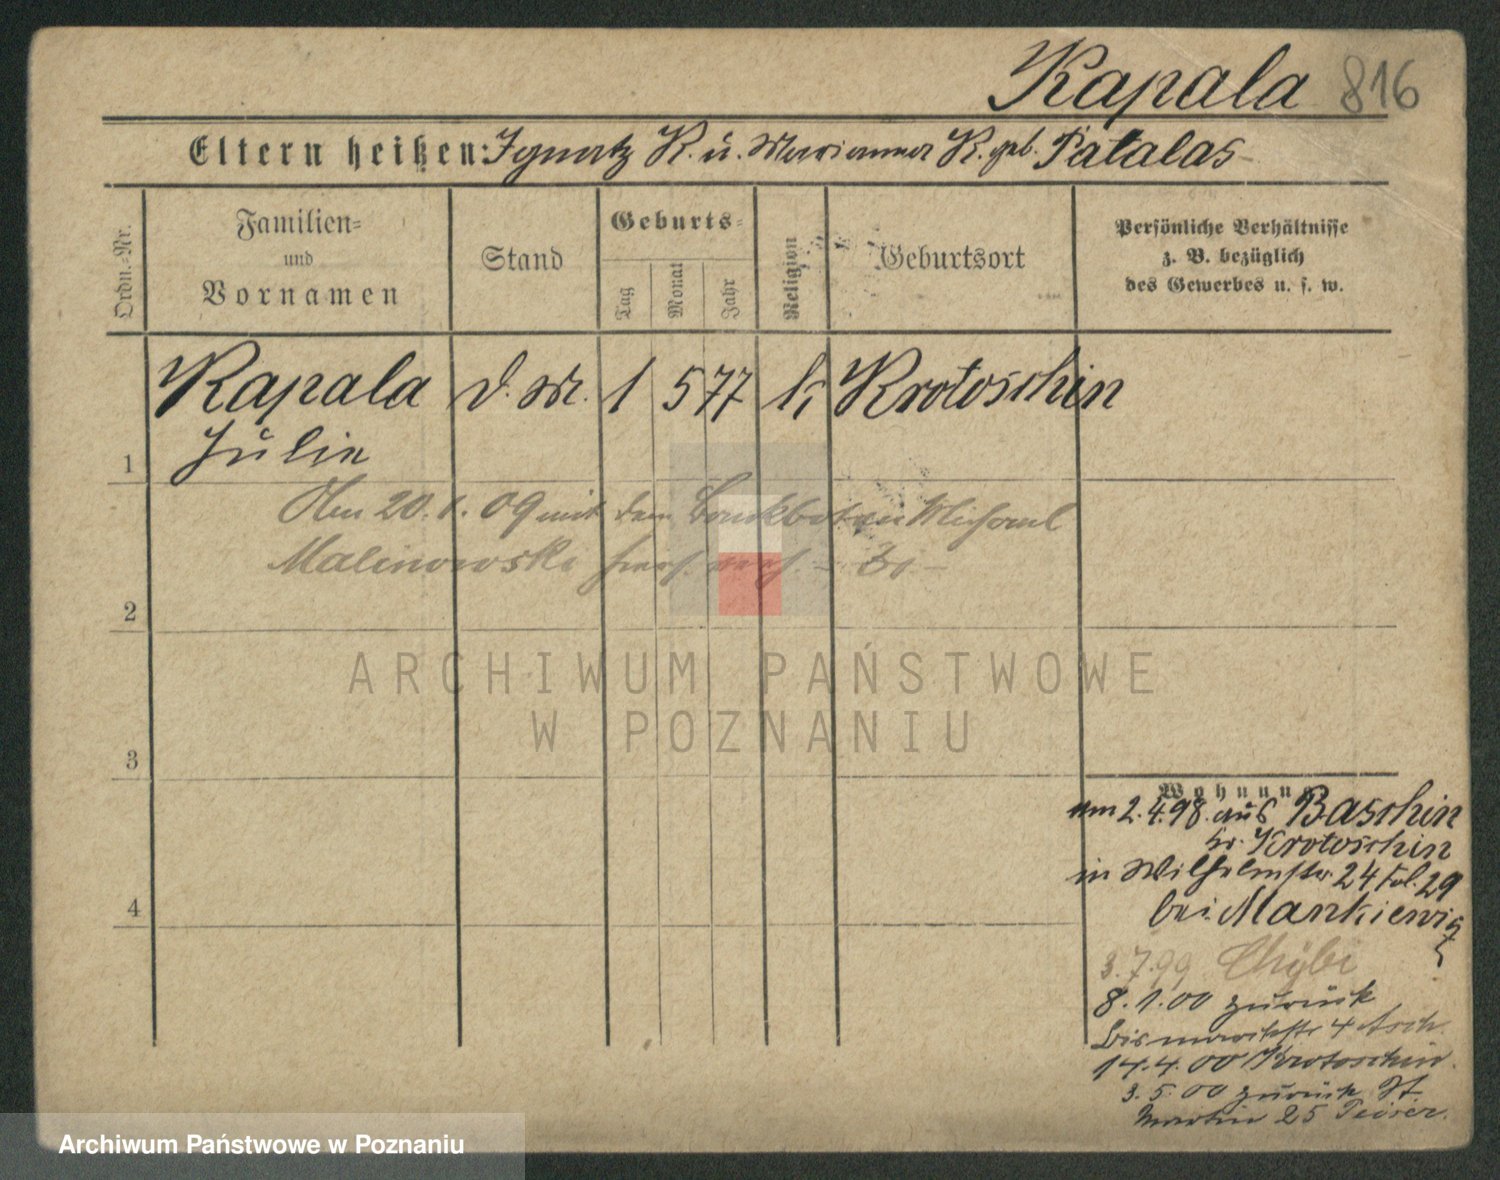 Kapala 816
Eltern heißen: Ignatz K. u. Marianna K. geb. Patalas
Ordn.-Nr.
Familien-
und
Vornamen
Stand
Geburts-
Tag
Monat
Jahr
Religion
Geburtsort
Persönliche Verhältnisse
z. B. bezüglich
des Gewerbes u. s. w.
Kapala D. M. 1 5 77 k. Krotoschin
1 Julie
Am 20. 1. 09 mit dem Bankboten Michael
Malinowski hier verh.
2
ARCHIWUM PAŃSTWOWE
W POZNANIU
3
Wohnung
am 2.4.98. aus Baschin
kr. Krotoschin
in Wilhelmstr. 24 Fol. 29
bei Mankiewicz
4
3.7.99 Chybi
8.1.00 zurück
Bismarckstr 4 Asch.
14.4.00 Krotoschin.
3.5.00 zurück St.
Martin 25
Archiwum Państwowe w Poznaniu